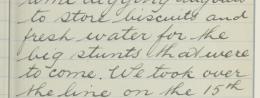 some digging dugouts
to store biscuits and
fresh water for the
big stunts that were
to come. We took over
the line on the 15th